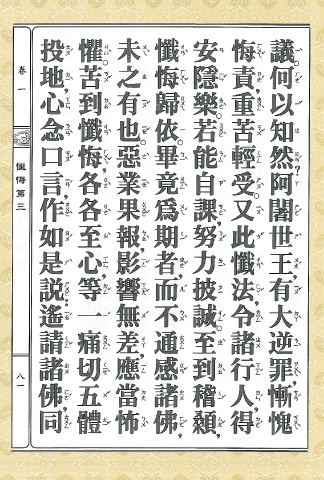 議。何以知然?阿闍世王,有大逆罪,慚愧
悔責,重苦輕受。又此懺法,令諸行人,得
安隱樂。若能自課努力披誠。至到稽顙,
懺悔歸依。畢竟為期者,而不通感諸佛,
未之有也。惡業果報,影響無差,應當怖
懼苦到懺悔,各各至心,等一痛切,五體
投地,心念口言,作如是說:遙請諸佛,同
卷一
懺悔第三
八一